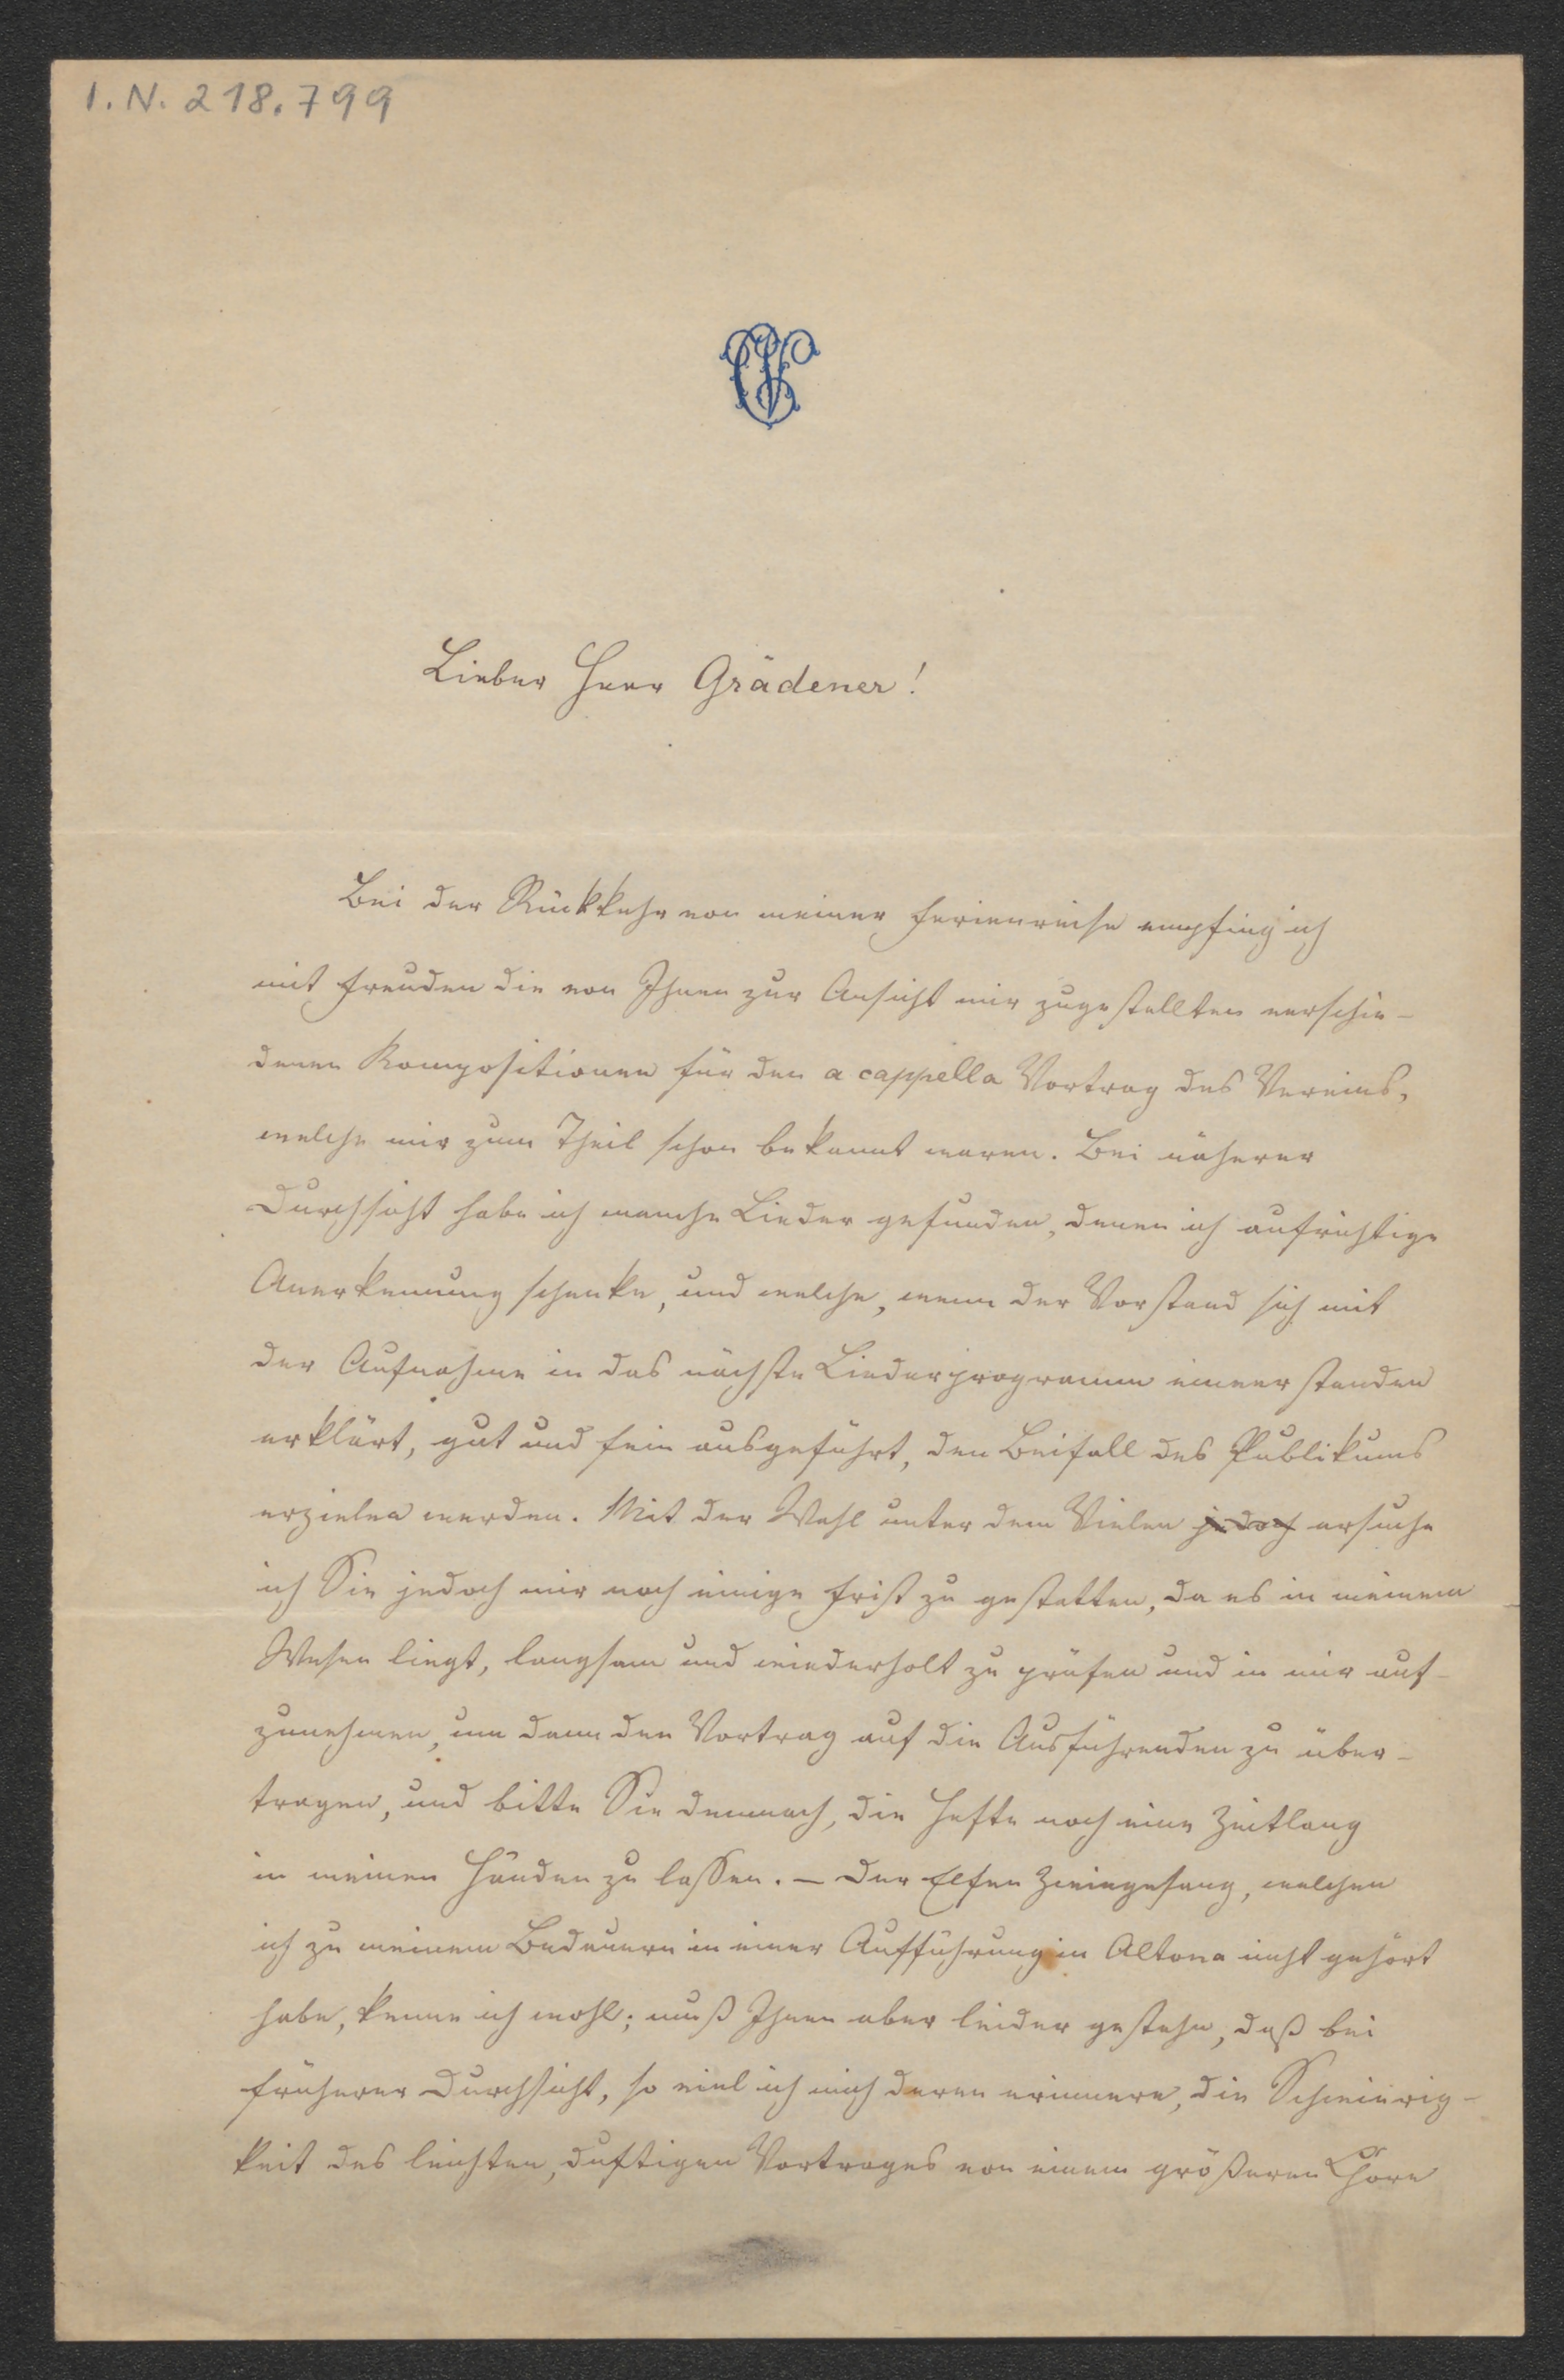 I. N. 218.799
Lieber Herr Grädener!
Bei der Rückkehr von meiner Ferienreise empfing ich
mit Freuden die von Ihnen zur Ansicht mir zugestellten verschie-
denen Kompositionen für den a cappella Vortrag des Vereins,
welche mir zum Theil schon bekannt waren. Bei näherer
Durchsicht habe ich manche Lieder gefunden, denen ich aufrichtige
Anerkennung schenke, und welche, wenn der Vorstand sich mit
der Aufnahme in das nächste Liederprogramm einverstanden
erklärt, gut und fein ausgeführt, den Beifall des Publikums
erzielen werden. Mit der Wahl unter dem Vielen jedoch ersuche
ich Sie jedoch mir noch einige Frist zu gestatten, da es in meinem
Wesen liegt, langsam und wiederholt zu prüfen und in mir auf-
zunehmen, um dann den Vortrag auf die Ausführenden zu über-
tragen, und bitte Sie demnach, die Hefte noch eine Zeitlang
in meinen Händen zu lassen. – Der Elfen Zwiegesang, welchen
ich zu meinem Bedauern in einer Aufführung in Altona nicht gehört
habe, kenne ich wohl; muß Ihnen aber leider gestehn, daß bei
früherer Durchsicht, so viel ich mich deren erinnere, die Schwierig-
keit des leichten, duftigen Vortrages von einem größeren Chore